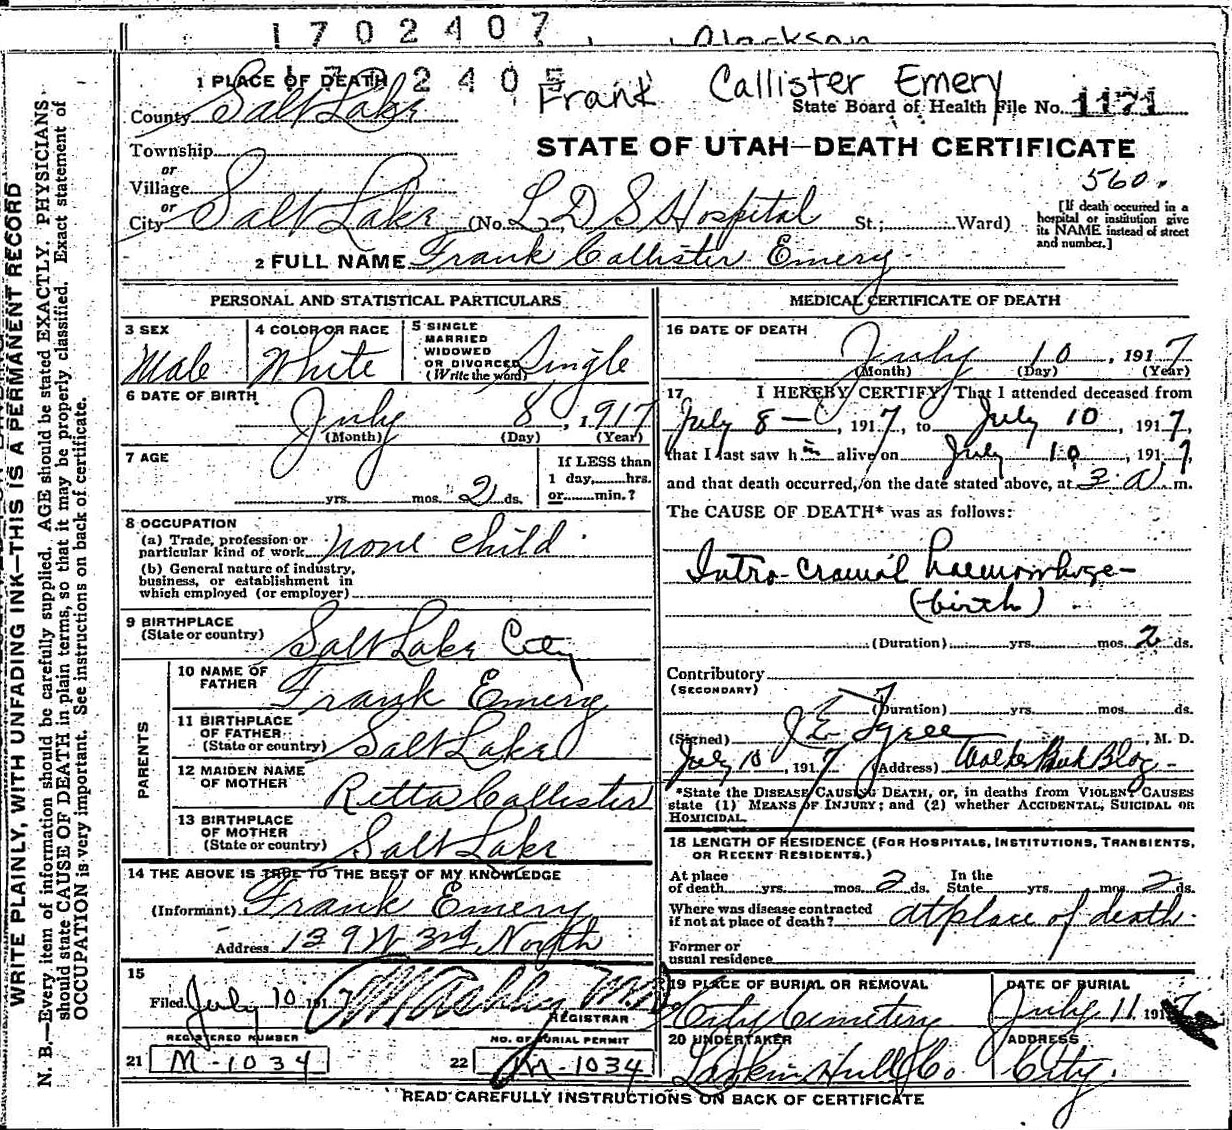 1702407
Clarkson
1702405
Frank Callister Emery
1 PLACE OF DEATH
State Board of Health File No. 1171
County Salt Lake
STATE OF UTAH—DEATH CERTIFICATE
Township
or
Village
560.
or
City Salt Lake (No. L D S Hospital St.; Ward)
[If death occurred in a
hospital or institution give
its NAME instead of street
and number.]
2 FULL NAME Frank Callister Emery
PERSONAL AND STATISTICAL PARTICULARS
3 SEX
Male
4 COLOR OR RACE
White
5 SINGLE
MARRIED
WIDOWED
OR DIVORCED
(Write the word) Single
6 DATE OF BIRTH
July 8, 1917
(Month) (Day) (Year)
7 AGE
yrs. mos. 2 ds.
If LESS than
1 day, hrs.
or min.?
8 OCCUPATION
(a) Trade, profession or
particular kind of work none child
(b) General nature of industry,
business, or establishment in
which employed (or employer)
9 BIRTHPLACE
(State or country)
Salt Lake City
PARENTS
10 NAME OF
FATHER
Frank Emery
11 BIRTHPLACE
OF FATHER
(State or country) Salt Lake
12 MAIDEN NAME
OF MOTHER
Retta Callister
13 BIRTHPLACE
OF MOTHER
(State or country) Salt Lake
14 THE ABOVE IS TRUE TO THE BEST OF MY KNOWLEDGE
(Informant) Frank Emery
Address 139 W 3rd North
15
Filed July 10 1917
REGISTRAR
REGISTERED NUMBER
21 M-1034
NO. OF BURIAL PERMIT
22 M-1034
MEDICAL CERTIFICATE OF DEATH
16 DATE OF DEATH
July 10, 1917
(Month) (Day) (Year)
17 I HEREBY CERTIFY, That I attended deceased from
July 8—, 1917, to July 10, 1917,
that I last saw him alive on July 10, 1917,
and that death occurred, on the date stated above, at 3 a m.
The CAUSE OF DEATH* was as follows:
Intro-cranial haemorrhage-
(birth)
(Duration) yrs. mos. 2 ds.
Contributory
(SECONDARY)
(Duration) yrs. mos. ds.
(Signed) J E Tyree, M. D.
July 10, 1917 (Address) Walker Bank Bldg-
*State the DISEASE CAUSING DEATH, or, in deaths from VIOLENT CAUSES
state (1) MEANS OF INJURY; and (2) whether ACCIDENTAL, SUICIDAL OR
HOMICIDAL.
18 LENGTH OF RESIDENCE (FOR HOSPITALS, INSTITUTIONS, TRANSIENTS,
OR RECENT RESIDENTS.)
At place
of death yrs. mos. 2 ds.
In the
State yrs. mos. 2 ds.
Where was disease contracted
if not at place of death? at place of death.
Former or
usual residence
19 PLACE OF BURIAL OR REMOVAL
City Cemetery
DATE OF BURIAL
July 11, 1917
20 UNDERTAKER
Larkin Hull Co.
ADDRESS
City.
READ CAREFULLY INSTRUCTIONS ON BACK OF CERTIFICATE
WRITE PLAINLY, WITH UNFADING INK—THIS IS A PERMANENT RECORD
N. B.—Every item of information should be carefully supplied. AGE should be stated EXACTLY. PHYSICIANS
should state CAUSE OF DEATH in plain terms, so that it may be properly classified. Exact statement of
OCCUPATION is very important. See instructions on back of certificate.